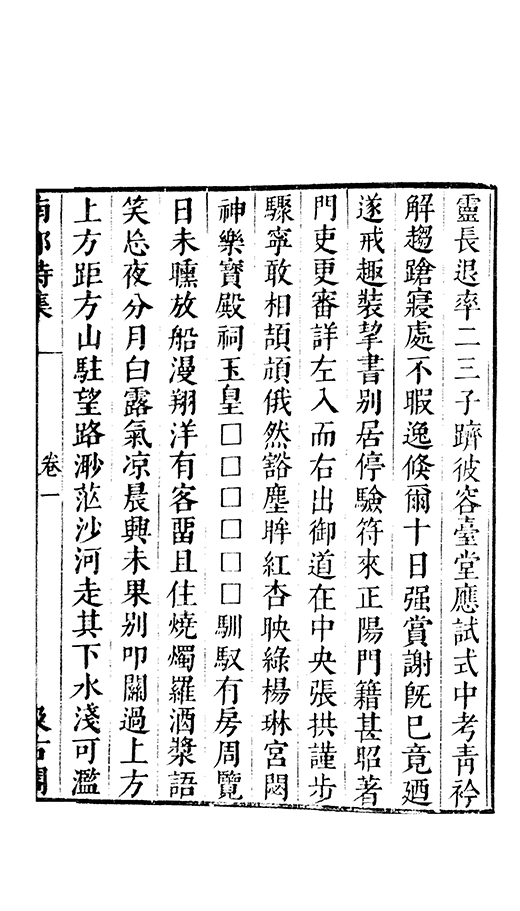 靈長退率二三子躋彼容臺堂應試式中考青衿
解趨蹌寢處不暇逸倏爾十日强賞謝旣已竟廼
遂戒趣裝挈書别居停驗符來正陽門籍甚昭著
門吏更審詳左入而右出御道在中央張拱謹步
驟寧敢相頡頏俄然豁塵眸紅杏映綠楊琳宮閟
神樂寶殿祠玉皇□□□□□□馴馭有房周覽
日未曛放船漫翔洋有客畱且住燒燭羅酒漿語
笑忘夜分月白露氣凉晨興未果别叩關過上方
上方距方山駐望路渺茫沙河走其下水淺可濫
卷一